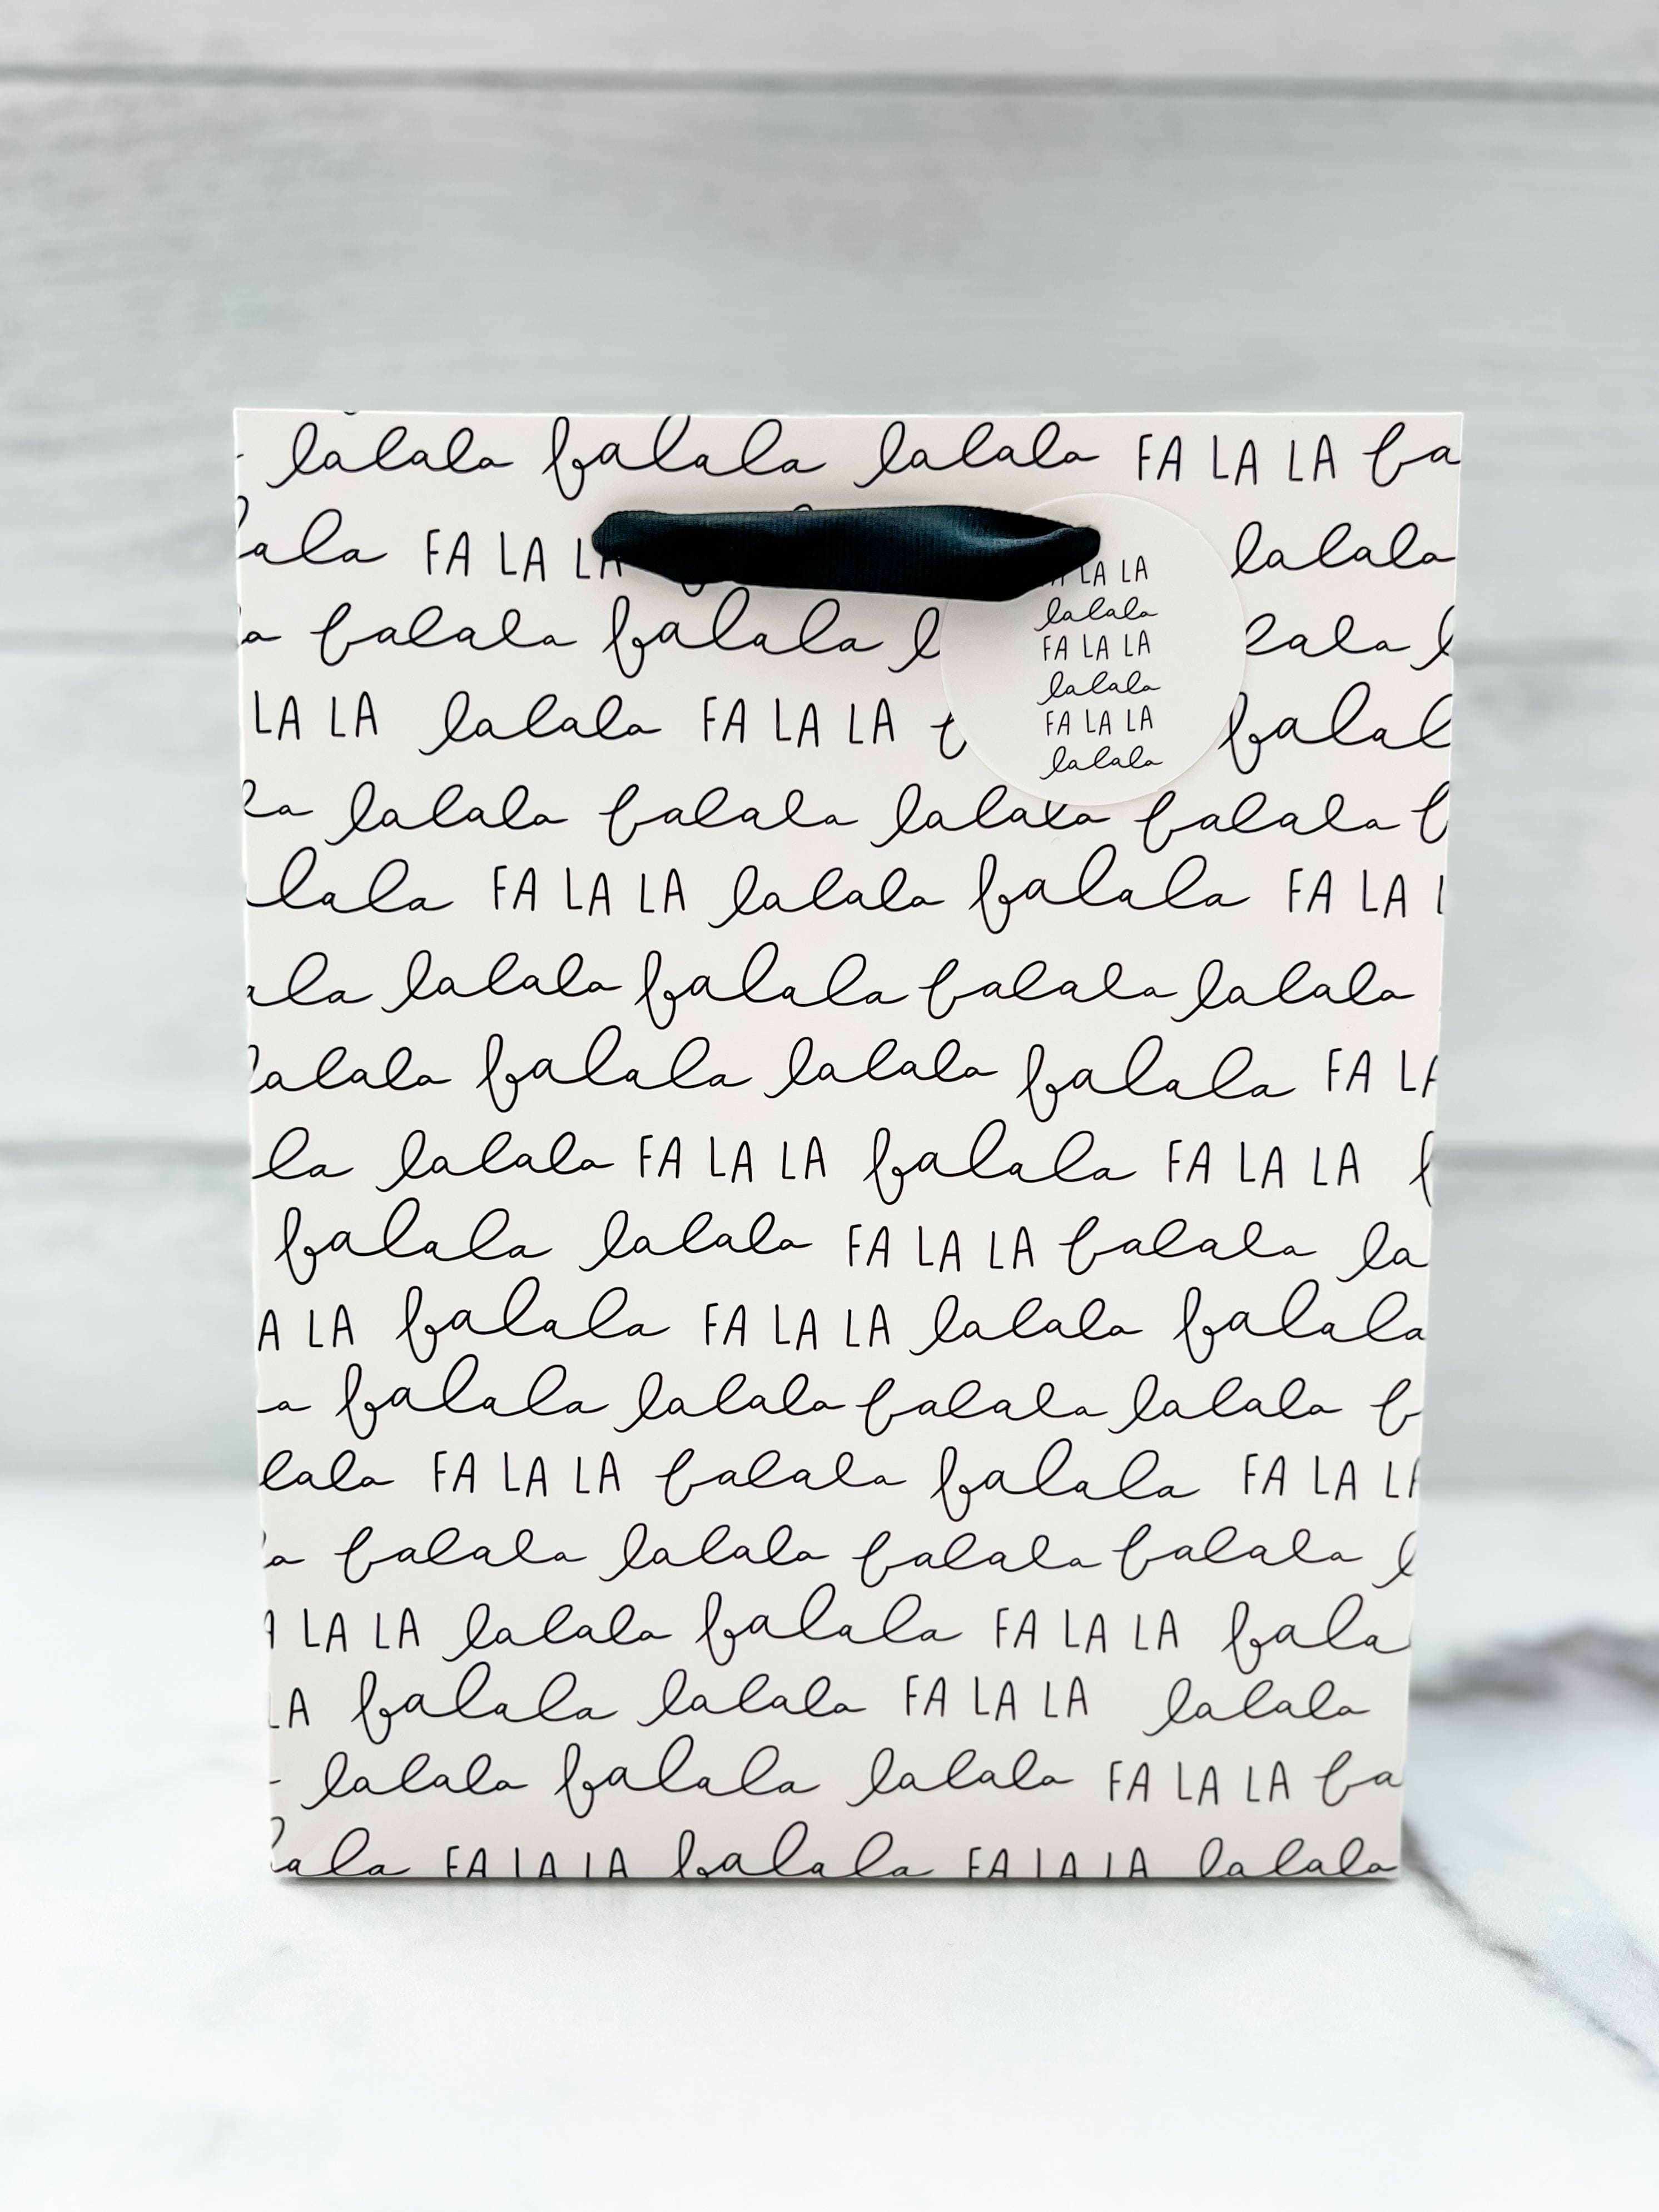 lalala falala lalala FA LA LA fa
ala FA LA LA lalala
a falala falala l lala
LA LA lalala FA LA LA falal
la lalala falala lalala falala
lala FA LA LA lalala falala FA LA
ala lalala falala falala lalala
lalala falala lalala falala FA LA
la lalala FA LA LA falala FA LA LA
falala lalala FA LA LA falala la
A LA falala FA LA LA lalala falala
a falala lalala falala lalala f
lala FA LA LA falala falala FA LA LA
a falala lalala falala falala l
A LA LA lalala falala FA LA LA fala
LA falala lalala FA LA LA lalala
lalala falala lalala FA LA LA fa
lala FA LA LA falala FA LA LA lalala
LA LA
lalala
FA LA LA
lalala
FA LA LA
lalala